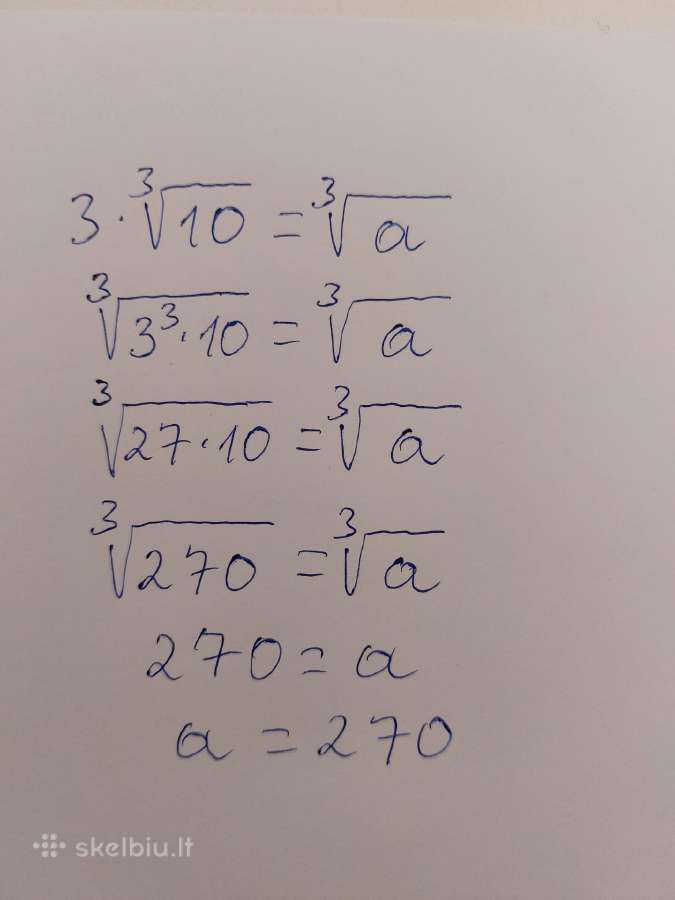 3 · ∛10 = ∛a
∛3³·10 = ∛a
∛27·10 = ∛a
∛270 = ∛a
270 = a
a = 270
skelbiu.lt